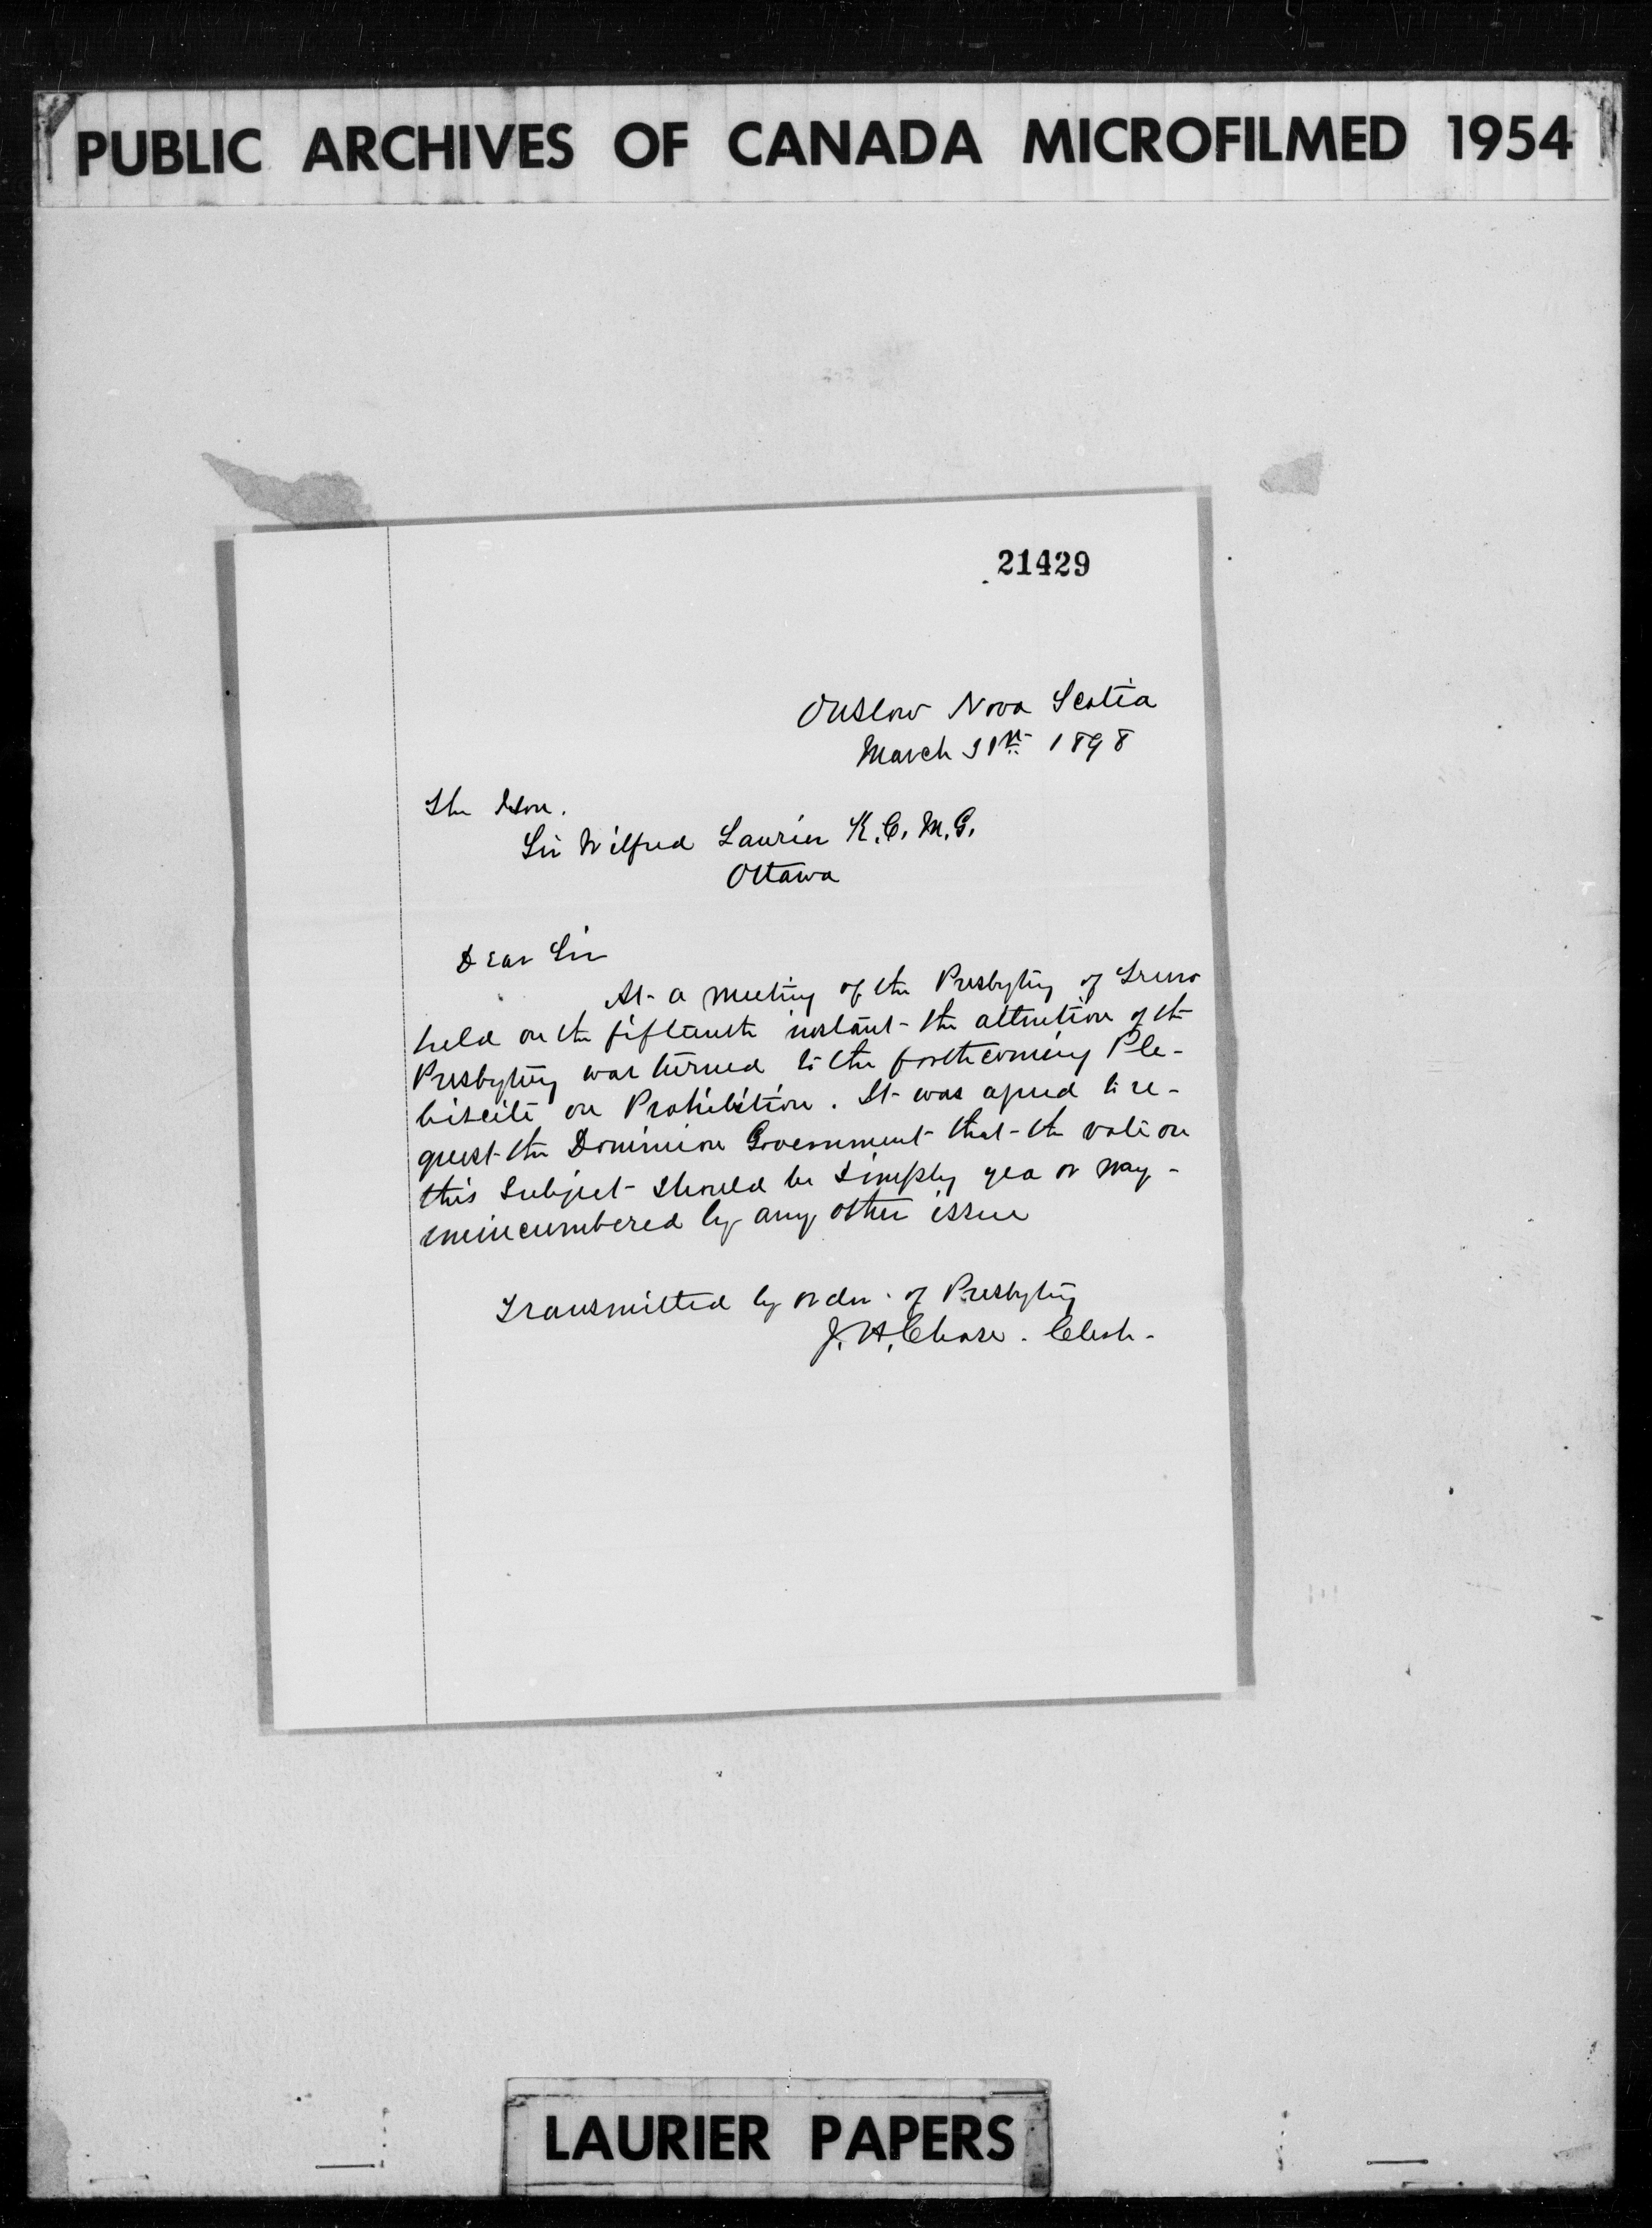 PUBLIC ARCHIVES OF CANADA MICROFILMED 1954
21429
Onslow Nova Scotia
March 31st 1898
The Hon.
Sir Wilfred Laurier K.C.M.G.
Ottawa
Dear Sir
At a meeting of the Presbytery of Truro
held on the fifteenth instant the attention of the
Presbytery was turned to the forthcoming Ple-
biscite on Prohibition. It was agreed to re-
quest the Dominion Government that the vote on
this subject should be simply yea or nay -
unincumbered by any other issue
Transmitted by order of Presbytery
J. H. Chase. Clerk.
LAURIER PAPERS